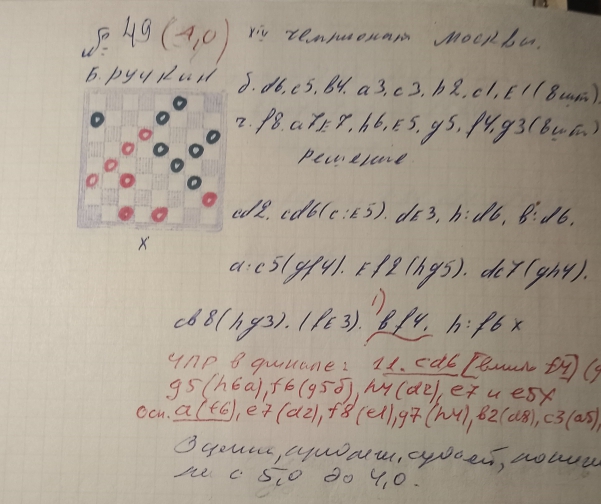 № 49 (4,0) XIV чемпионат Москвы.
Б. Ручкин
б. d6, c5, b4. a3, c3, h2, c1, E1 (8шт).
ч. f8. a7 E7, h6, E5, g5, f4, g3 (8шт)
Решение
cd2. cd6 (c:E5). dE3, h:d6, b:d6.
a:c5 (gf4). Ef2 (hg5). dc7 (gh4).
cb8 (hg3). (fE3). 1) bf4. h:f6 x
ЧПР в финале: 11. cd6 [вместо f4] (g
g5 (h6a), f6 (g5б), h4 (d2), e7 и e5X
Осн. a (f6), e7 (d2), f8 (e1), g7 (h4), b2 (d8), c3 (a5),
Оценка, судьей,
с 5,0 до 4,0.